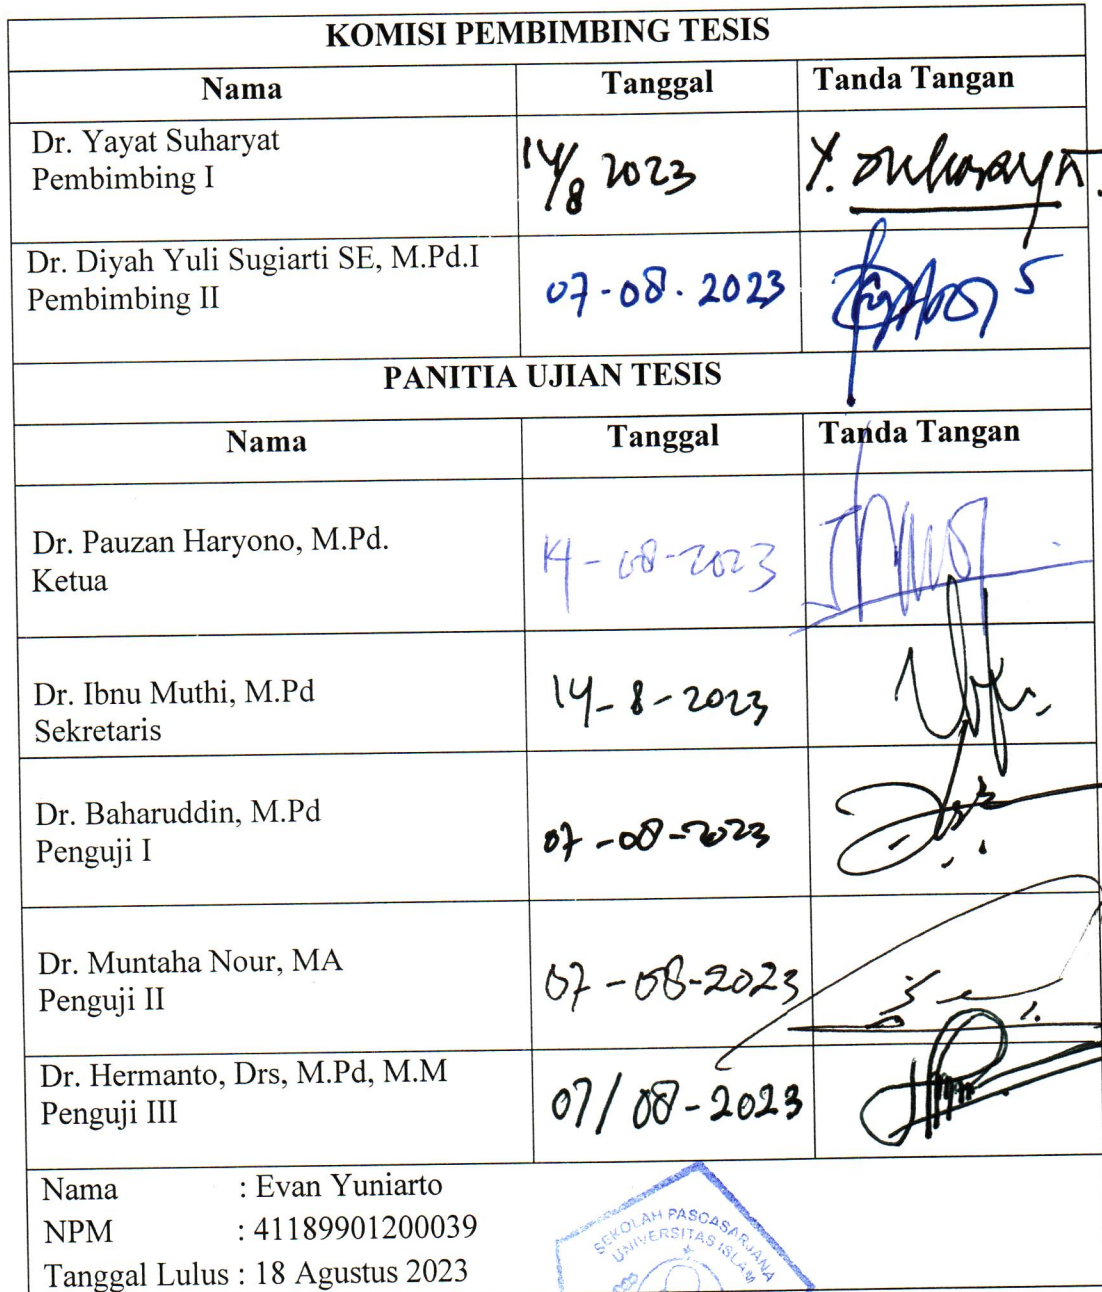 KOMISI PEMBIMBING TESIS
Nama Tanggal Tanda Tangan
Dr. Yayat Suharyat
Pembimbing I
14/8 2023 Y. Suharyat
Dr. Diyah Yuli Sugiarti SE, M.Pd.I
Pembimbing II
07-08-2023
PANITIA UJIAN TESIS
Nama Tanggal Tanda Tangan
Dr. Pauzan Haryono, M.Pd.
Ketua
14-08-2023
Dr. Ibnu Muthi, M.Pd
Sekretaris
14-8-2023
Dr. Baharuddin, M.Pd
Penguji I
07-08-2023
Dr. Muntaha Nour, MA
Penguji II
07-08-2023
Dr. Hermanto, Drs, M.Pd, M.M
Penguji III
07/08-2023
Nama : Evan Yuniarto
NPM : 41189901200039
Tanggal Lulus : 18 Agustus 2023
SEKOLAH PASCASARJANA
UNIVERSITAS ISLAM